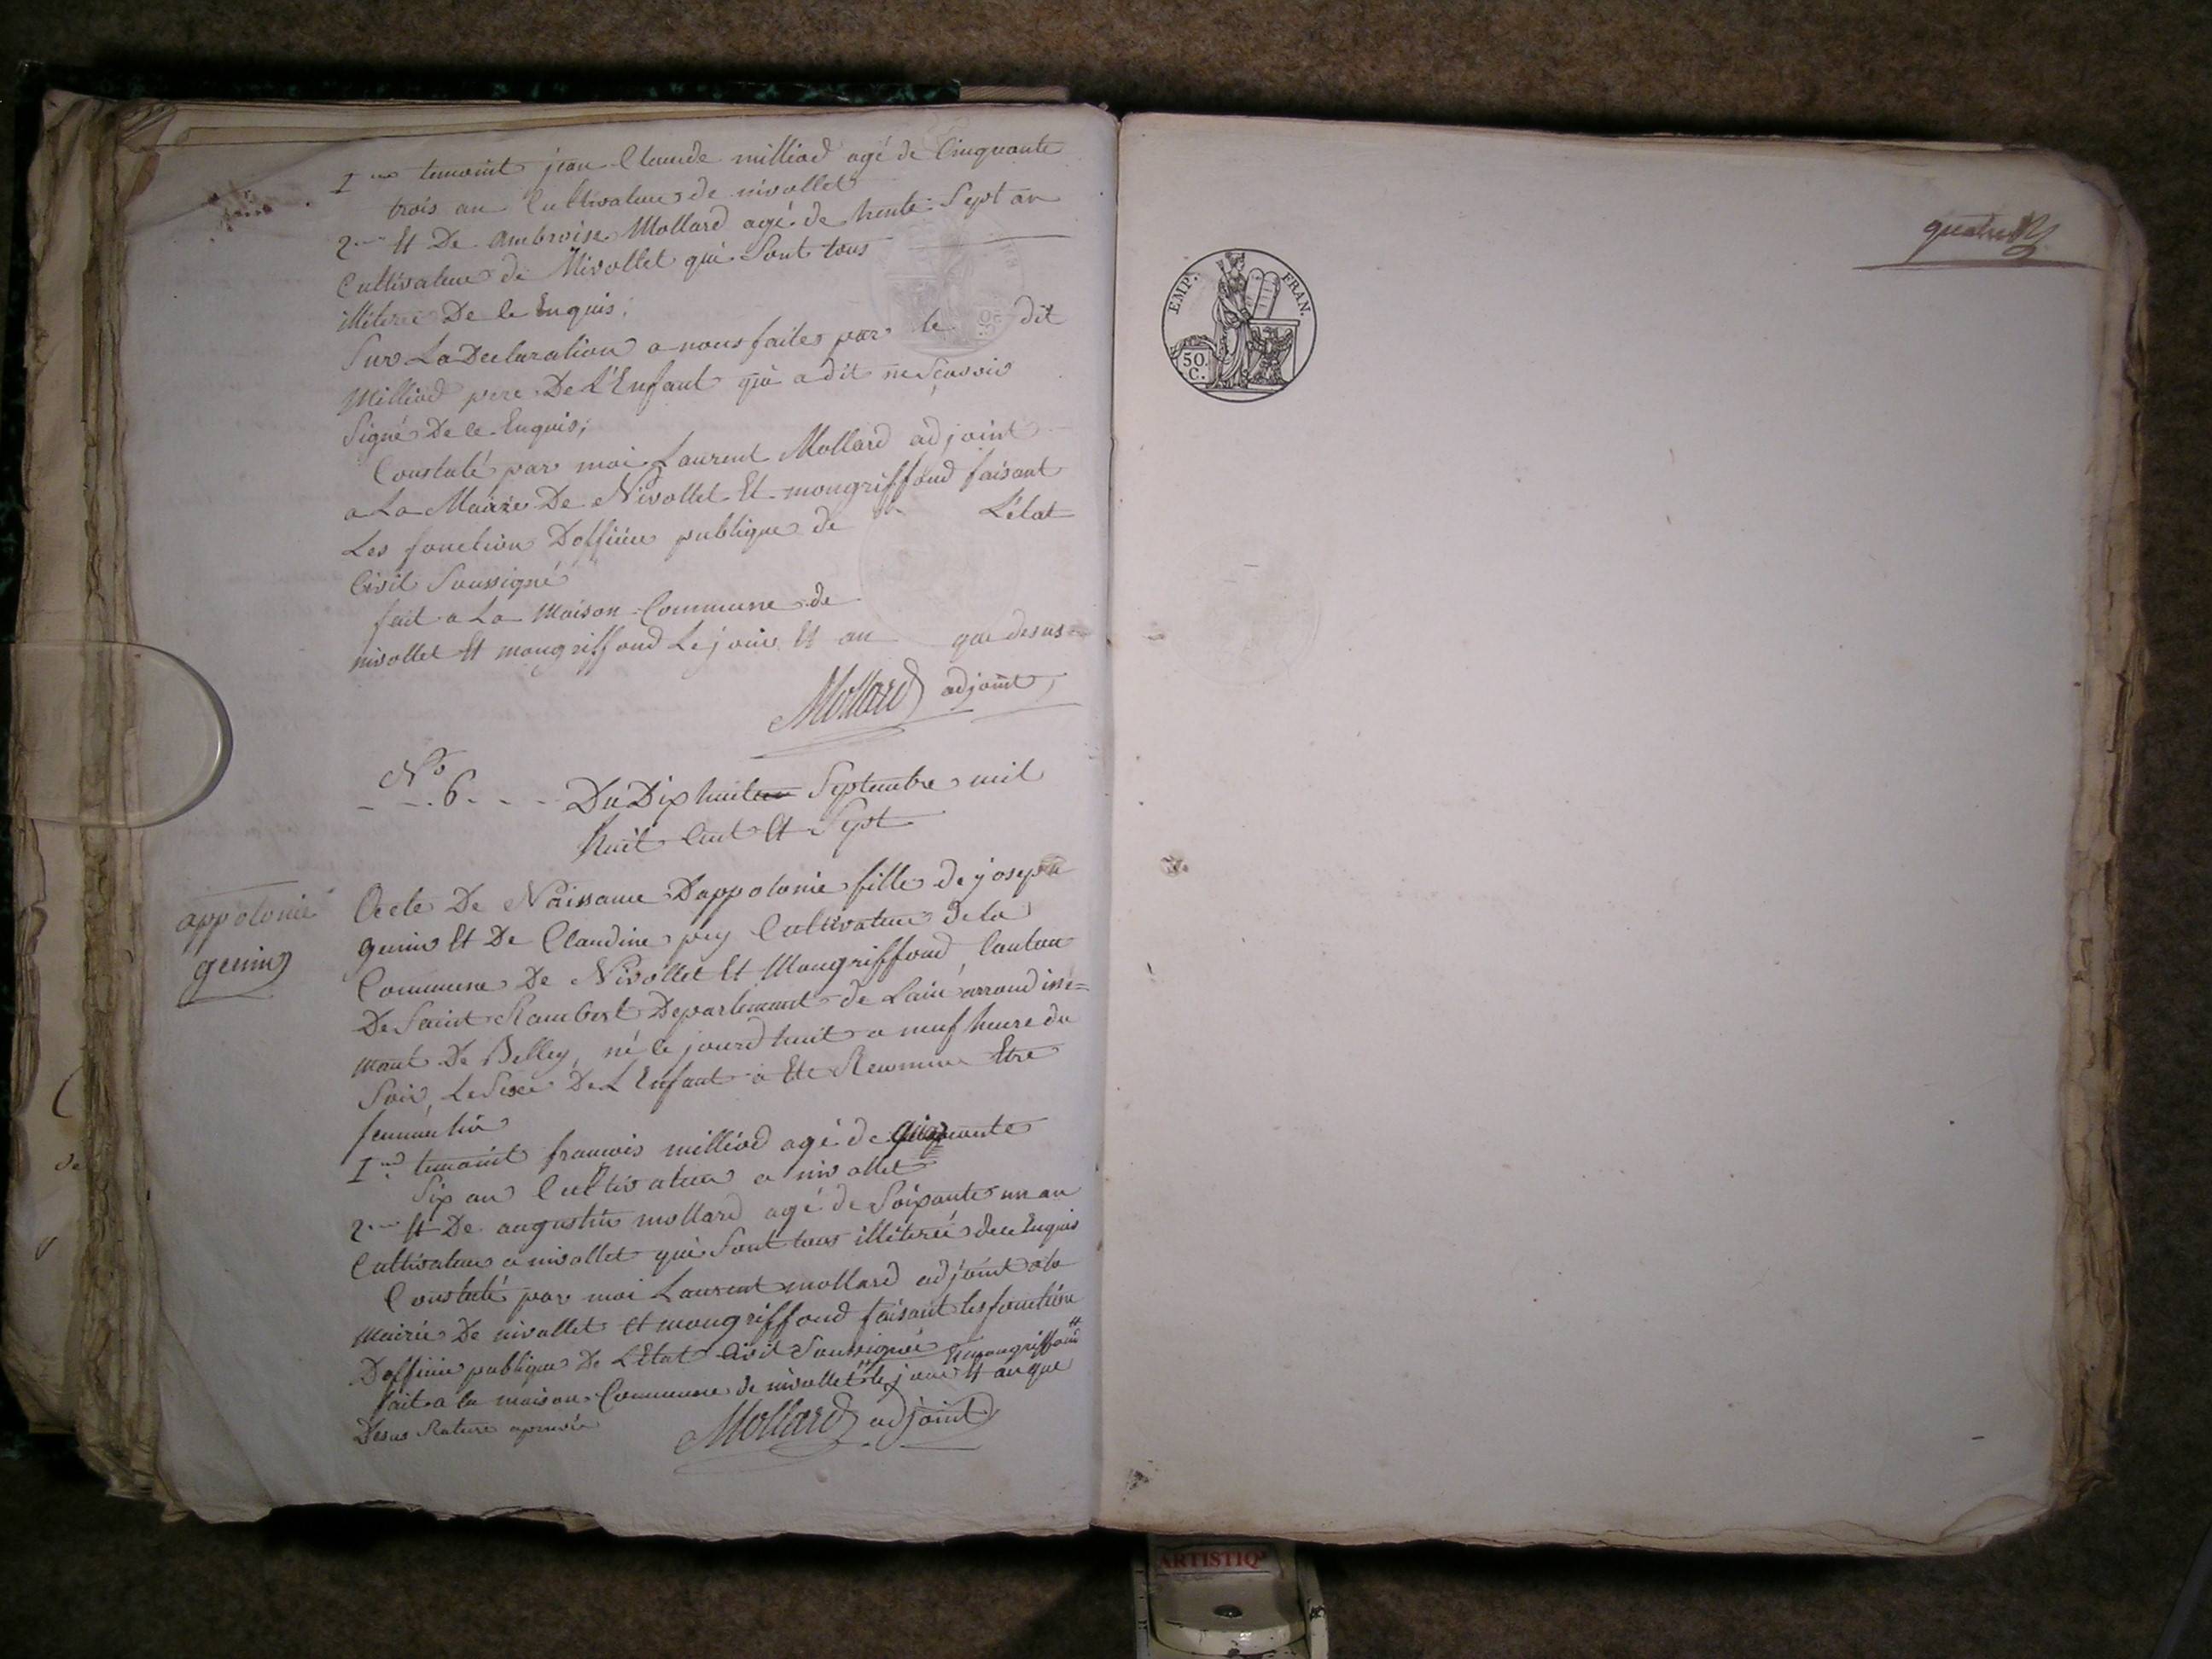 1er temoint jean Claude milliod agé de Cinquante
trois an Cultivateur de nivollet
2me Et De ambroise Mollard agé de trente Sept an
Cultivateur de Nivollet qui Sont tous
illiteré De ce Enquis;
Sur La Declaration a nous faites par le dit
Milliod pere De L'Enfant qui a dit ne Scavoir
Signé De ce Enquis;
Constaté par moi Laurent Mollard adjoint
a La Mairie De Nivollet Et mongriffond faisant
Les fonction Dofficier publique de L'état
Civil Soussigné
fait a La Maison Commune de
nivollet Et mongriffond Le jour Et an que desus
Mollard adjoint
No 6 Du Dix huit Septembre mil
huit Cent Et Sept
appolonie
genin
Acte De Naissance Dappolonie fille de joseph
genin Et De Claudine pey Cultivateur de la
Commune De Nivollet Et Mongriffond, Canton
De Saint Rambert Departement de Lain arrondisse=
ment De Belley, né ce jourd huit a neuf heure du
Soir, Le Sexe De L Enfant a Eté Reconnue Etre
feminin
1er temoint francois milliod agé de Cinquante
Six an Cultivateur a nivollet
2me Et De augustin mollard agé de Soixante un an
Cultivateur a nivollet qui Sont tous illiteré de ce Enquis
Constaté par moi Laurent mollard adjoint a la
Mairie De nivollet Et mongriffond faisant les fonction
Dofficier publique De L'Etat Civil Soussigné
Et mongriffond
fait a la maison Commune de nivollet le jour Et an que
Desus Rature aprouvé
Mollard adjoint
EMP. FRAN.
50
C.
ARTISTIQ